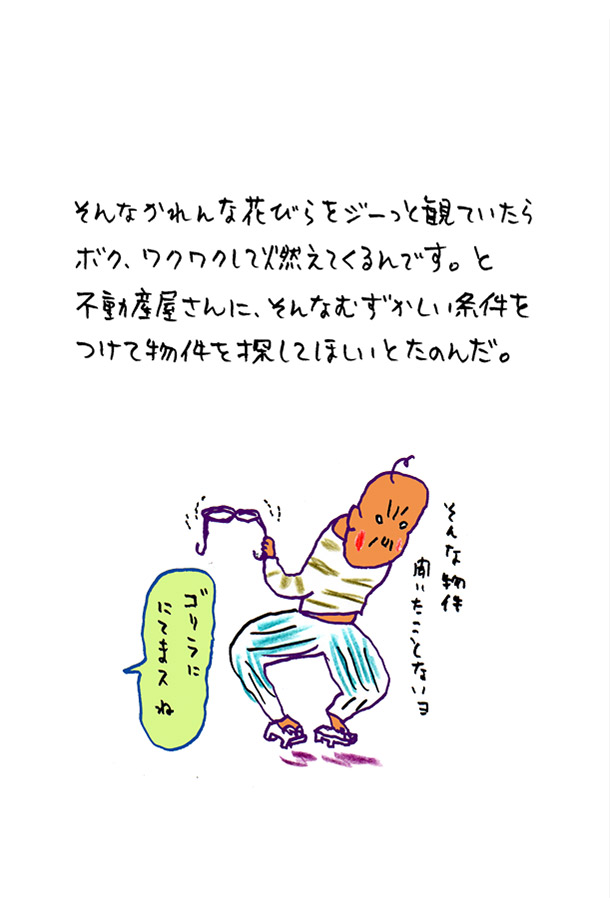 そんなかれんな花びらをジーっと観ていたら
ボク、ワクワクして燃えてくるんです。と
不動産屋さんに、そんなむずかしい条件を
つけて物件を探してほしいとたのんだ。
そんな物件
聞いたことないヨ
ゴリラに
にてまスね